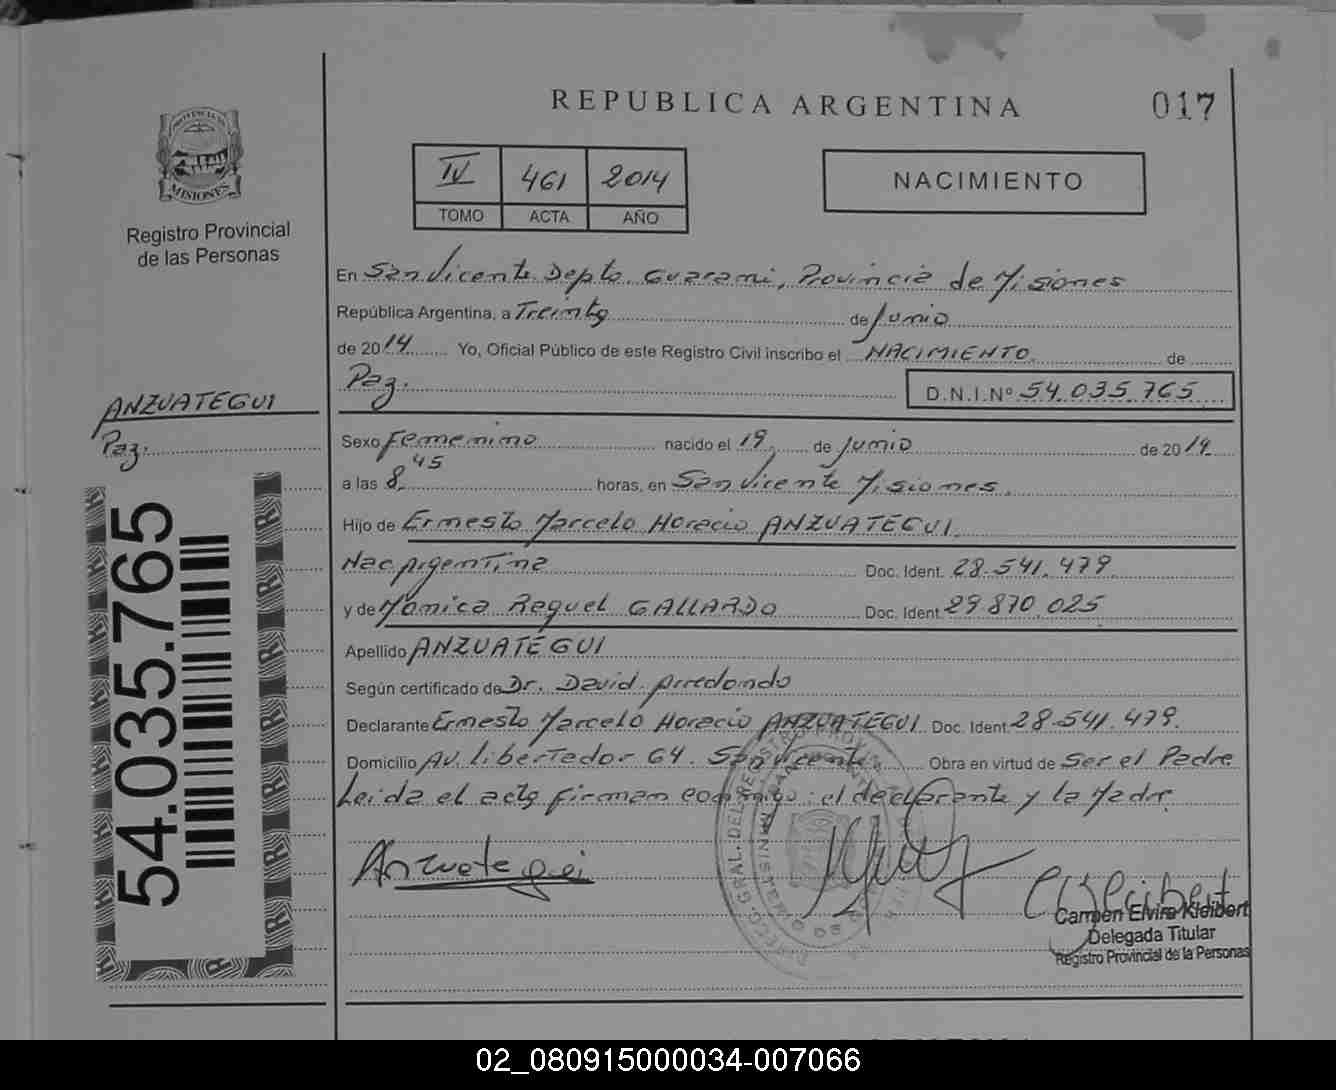 REPUBLICA ARGENTINA
017
PROVINCIA DE
MISIONES
Registro Provincial
de las Personas
IV 461 2014
TOMO ACTA AÑO
NACIMIENTO
En San Vicente Depto. Guarani, Provincia de Misiones
República Argentina, a Treinta de Junio
de 2014 Yo, Oficial Público de este Registro Civil inscribo el NACIMIENTO de
Paz. D.N.I.Nº 54.035.765
ANZUATEGUI
Paz.
Sexo Femenino nacido el 19 de Junio de 2014
a las 8,45 horas, en San Vicente Misiones.
Hijo de Ernesto Marcelo Horacio ANZUATEGUI.
Nac. Argentina Doc. Ident. 28.541.479
y de Monica Raquel GALLARDO Doc. Ident. 29.870.025
Apellido ANZUATEGUI
Según certificado de Dr. David Arredondo
Declarante Ernesto Marcelo Horacio ANZUATEGUI Doc. Ident. 28.541.479.
Domicilio Av. Libertador 64. San Vicente Obra en virtud de Ser el Padre
Leida el acta firman conmigo: el declarante y la Madre
Anzuategui
54.035.765
Carmen Elvira Kleibert
Delegada Titular
Registro Provincial de la Personas
02_080915000034-007066